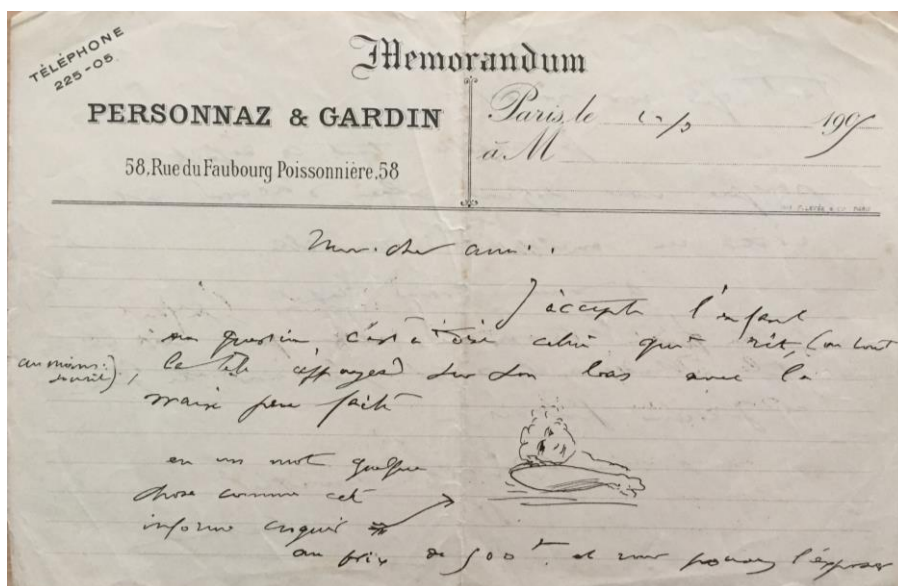 TÉLÉPHONE
225-05.
Memorandum
PERSONNAZ & GARDIN
58, Rue du Faubourg Poissonnière, 58
Paris, le 190
à M
Mon cher ami..
J'accepte l'enfant
en question c'est à dire celui qui rit, (ou tout
au moins
sourit),
la tête appuyée sur son bras avec la
main peu faite
en un mot quelque
chose comme cet
informe croquis
au prix de 500 f. et vous pouvez l'exposer